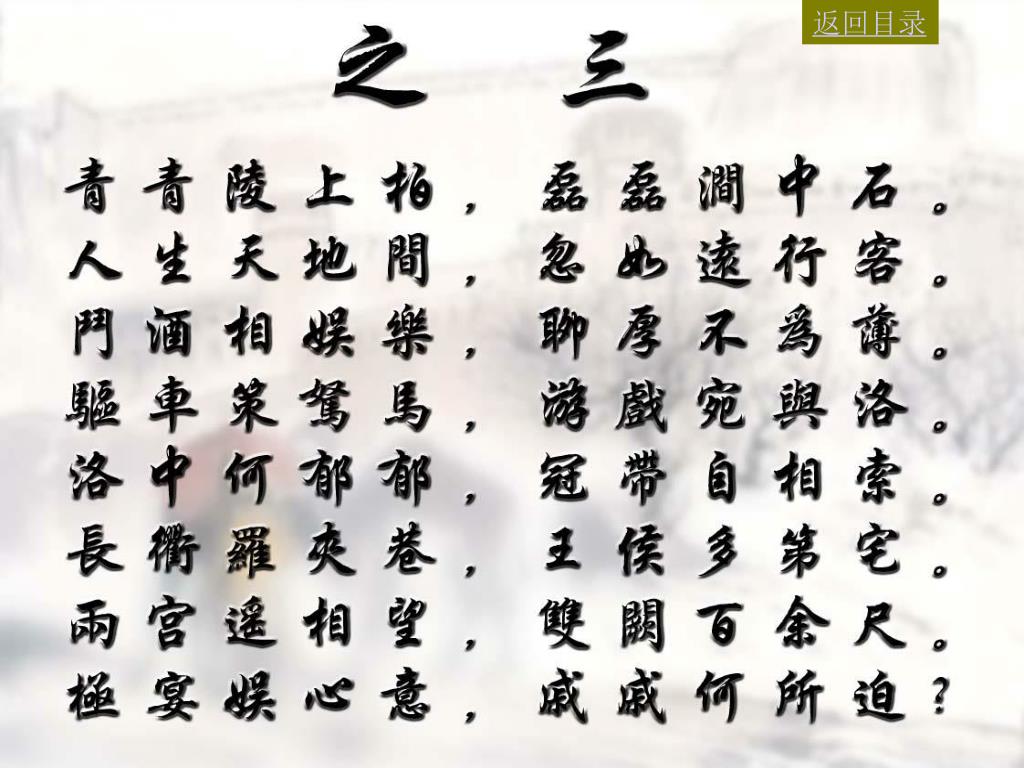 返回目录
之 三
青青陵上柏，磊磊澗中石。
人生天地間，忽如遠行客。
鬥酒相娛樂，聊厚不爲薄。
驅車策駑馬，游戲宛與洛。
洛中何郁郁，冠帶自相索。
長衢羅夾巷，王侯多第宅。
兩宮遥相望，雙闕百余尺。
極宴娛心意，戚戚何所迫?